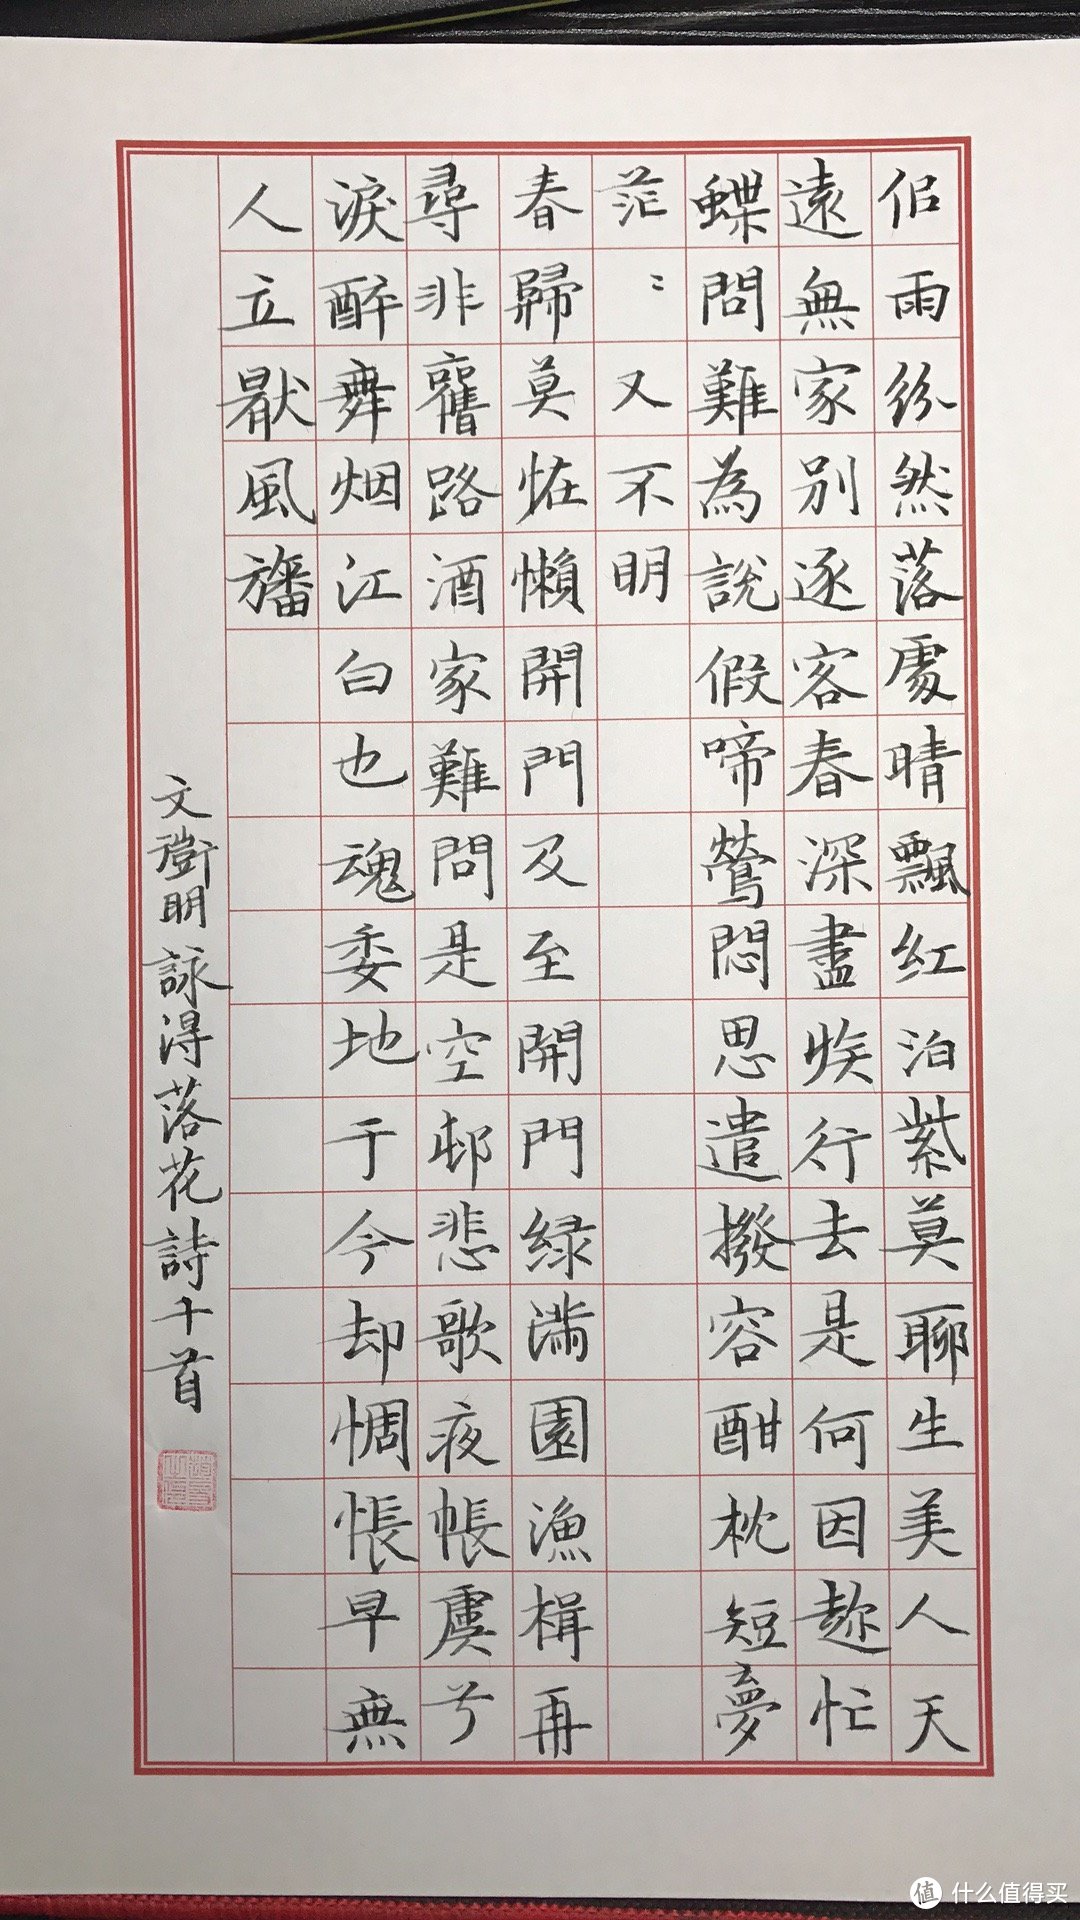 佀雨紛然落處晴飄紅泊紫莫聊生美人天
遠無家別逐客春深盡族行去是何因趂忙
蝶問難為說假啼鶯悶思遣撥容酣枕短夢
茫〻又不明
春歸莫恠懶開門及至開門緑滿園漁楫再
尋非舊路酒家難問是空邨悲歌夜帳虞兮
淚醉舞烟江白也魂委地于今却惆悵早無
人立厭風旛
文徵明詠得落花詩十首
值 什么值得买